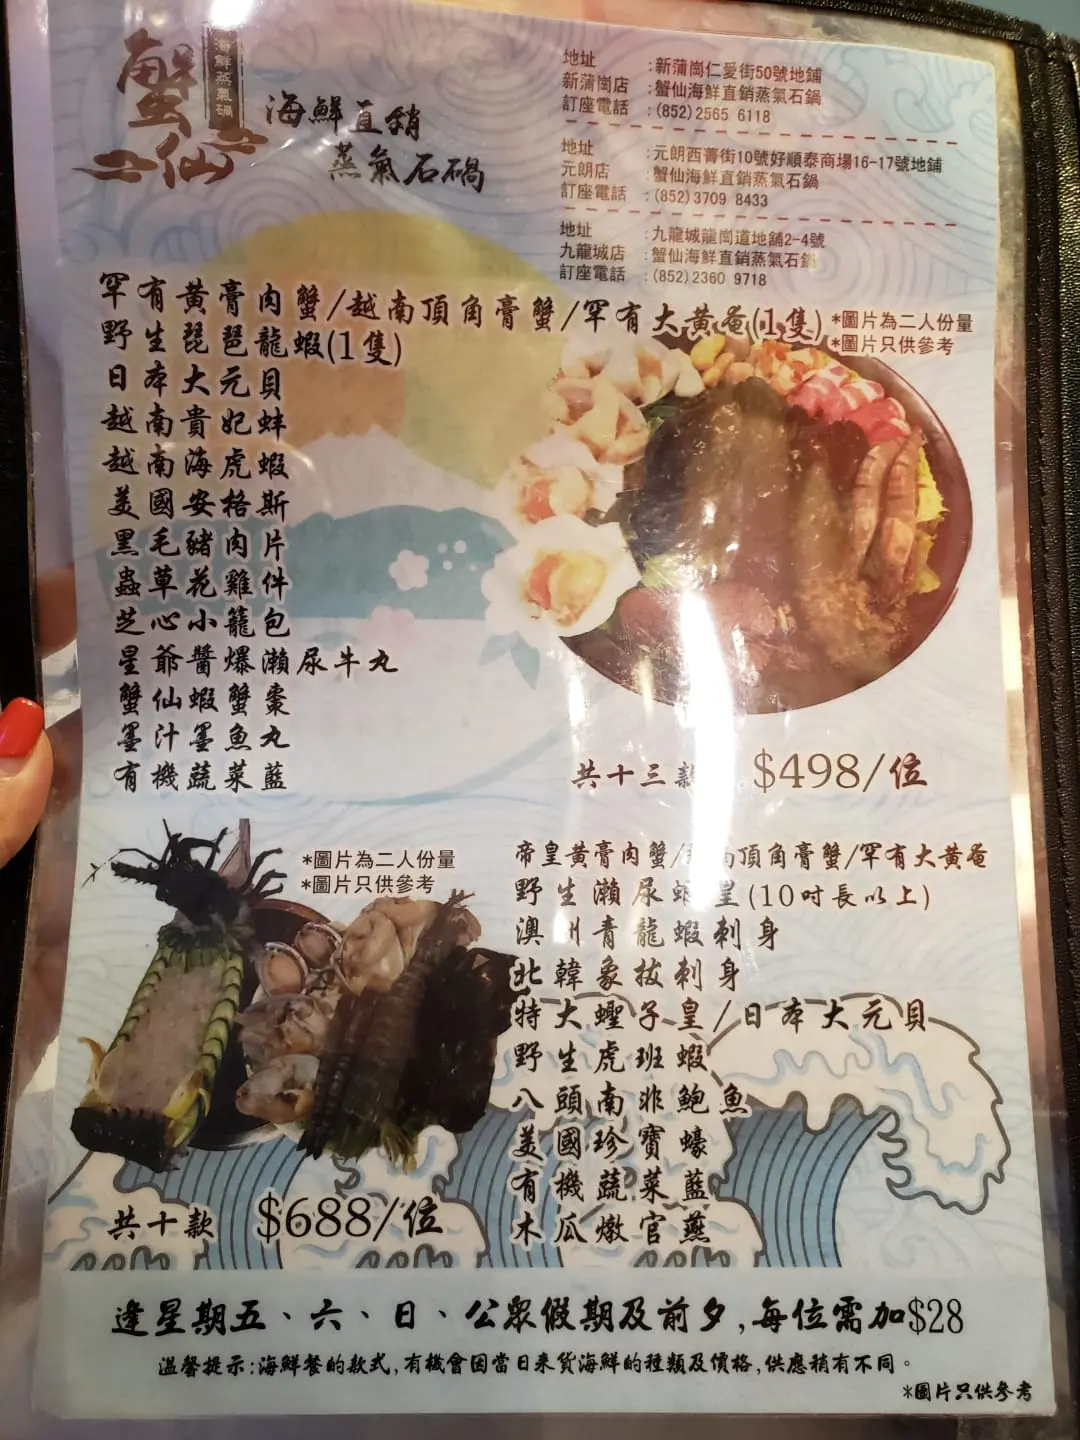 蟹仙
海鮮蒸氣鍋
海鮮直銷
蒸氣石鍋
地址 :新蒲崗仁愛街50號地鋪
新蒲崗店 :蟹仙海鮮直銷蒸氣石鍋
訂座電話 :(852)2565 6118
地址 :元朗西菁街10號好順泰商場16-17號地鋪
元朗店 :蟹仙海鮮直銷蒸氣石鍋
訂座電話 :(852)3709 8433
地址 :九龍城龍崗道地舖2-4號
九龍城店 :蟹仙海鮮直銷蒸氣石鍋
訂座電話 :(852)2360 9718
罕有黃膏肉蟹/越南頂角膏蟹/罕有大黃奄(1隻)
野生琵琶龍蝦(1隻)
日本大元貝
越南貴妃蚌
越南海虎蝦
美國安格斯
黑毛豬肉片
蟲草花雞件
芝心小籠包
星爺醬爆瀨尿牛丸
蟹仙蝦蟹棗
墨汁墨魚丸
有機蔬菜藍
*圖片為二人份量
*圖片只供參考
共十三款 $498/位
*圖片為二人份量
*圖片只供參考
共十款 $688/位
帝皇黃膏肉蟹/越南頂角膏蟹/罕有大黃奄
野生瀨尿蝦皇(10吋長以上)
澳洲青龍蝦刺身
北韓象拔刺身
特大蟶子皇/日本大元貝
野生虎班蝦
八頭南非鮑魚
美國珍寶蠔
有機蔬菜藍
木瓜燉官燕
逢星期五、六、日、公眾假期及前夕,每位需加$28
溫馨提示:海鮮餐的款式,有機會因當日來貨海鮮的種類及價格,供應稍有不同。
*圖片只供參考